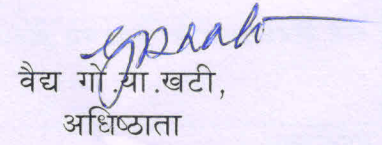 वैद्य गो.या.खटी,
अधिष्ठाता